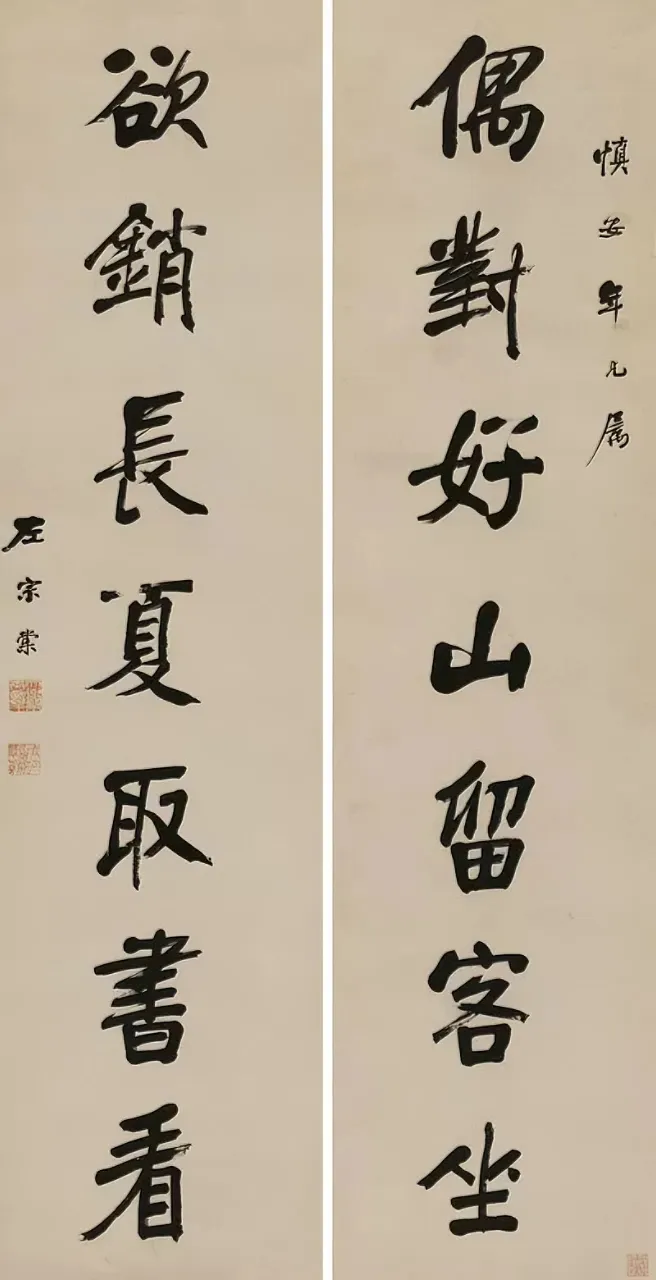 慎安年兄属
偶對好山留客坐
欲銷長夏取書看
左宗棠